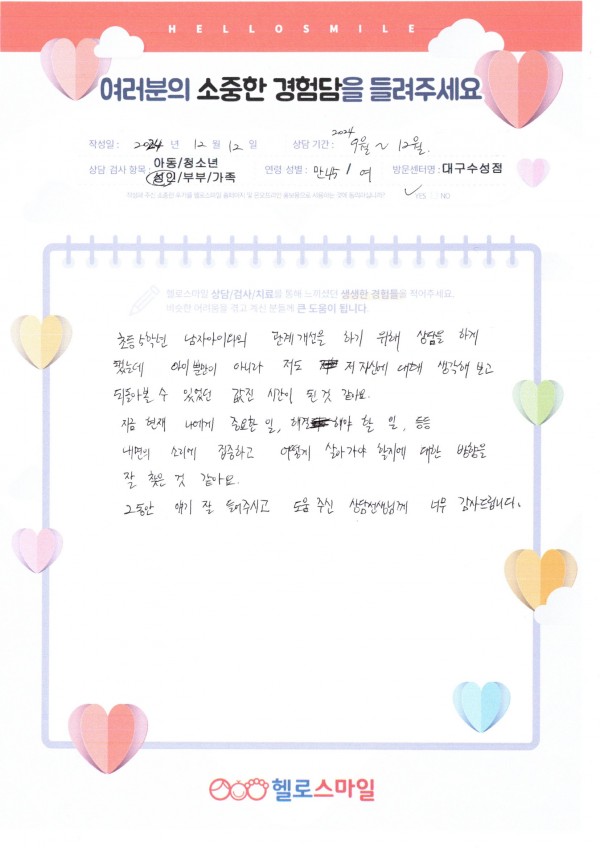 HELLOSMILE
여러분의 소중한 경험담을 들려주세요
작성일 : 2024 년 12 월 12 일 상담 기간 : 2024 9월 ~ 12월.
상담 검사 항목 : 아동/청소년 성인/부부/가족 연령 성별 : 만45 / 여 방문센터명 : 대구수성점
YES NO
헬로스마일 상담/검사/치료를 통해 느끼셨던 생생한 경험들을 적어주세요.
비슷한 어려움을 겪고 계신 분들께 큰 도움이 됩니다.
초등 5학년 남자아이와의 관계개선을 하기 위해 상담을 하게
됐는데 아이뿐만이 아니라 저도 저 자신에 대해 생각해 보고
되돌아볼 수 있었던 값진 시간이 된 것 같아요.
지금 현재 나에게 중요한 일, 해결해야 할 일, 등등
내면의 소리에 집중하고 어떻게 살아가야 할지에 대한 방향을
잘 찾은 것 같아요.
그동안 얘기 잘 들어주시고 도움 주신 상담선생님께 너무 감사드립니다.
헬로스마일